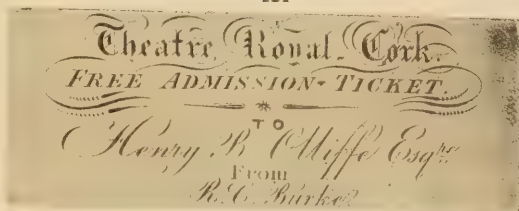 Theatre Royal, Cork.
FREE ADMISSION-TICKET.
TO
Henry B Olliffe Esqre
From
R. C. Burke